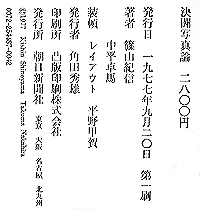 決闘写真論 二八〇〇円
発行日 一九七七年九月二〇日 第一刷
著者 篠山紀信
中平卓馬
装幀 レイアウト 平野甲賀
発行者 角田秀雄
印刷所 凸版印刷株式会社
発行所 朝日新聞社 東京 大阪 名古屋 北九州
©1977 Kishin Shinoyama Takuma Nakahira
0072-254487-0042